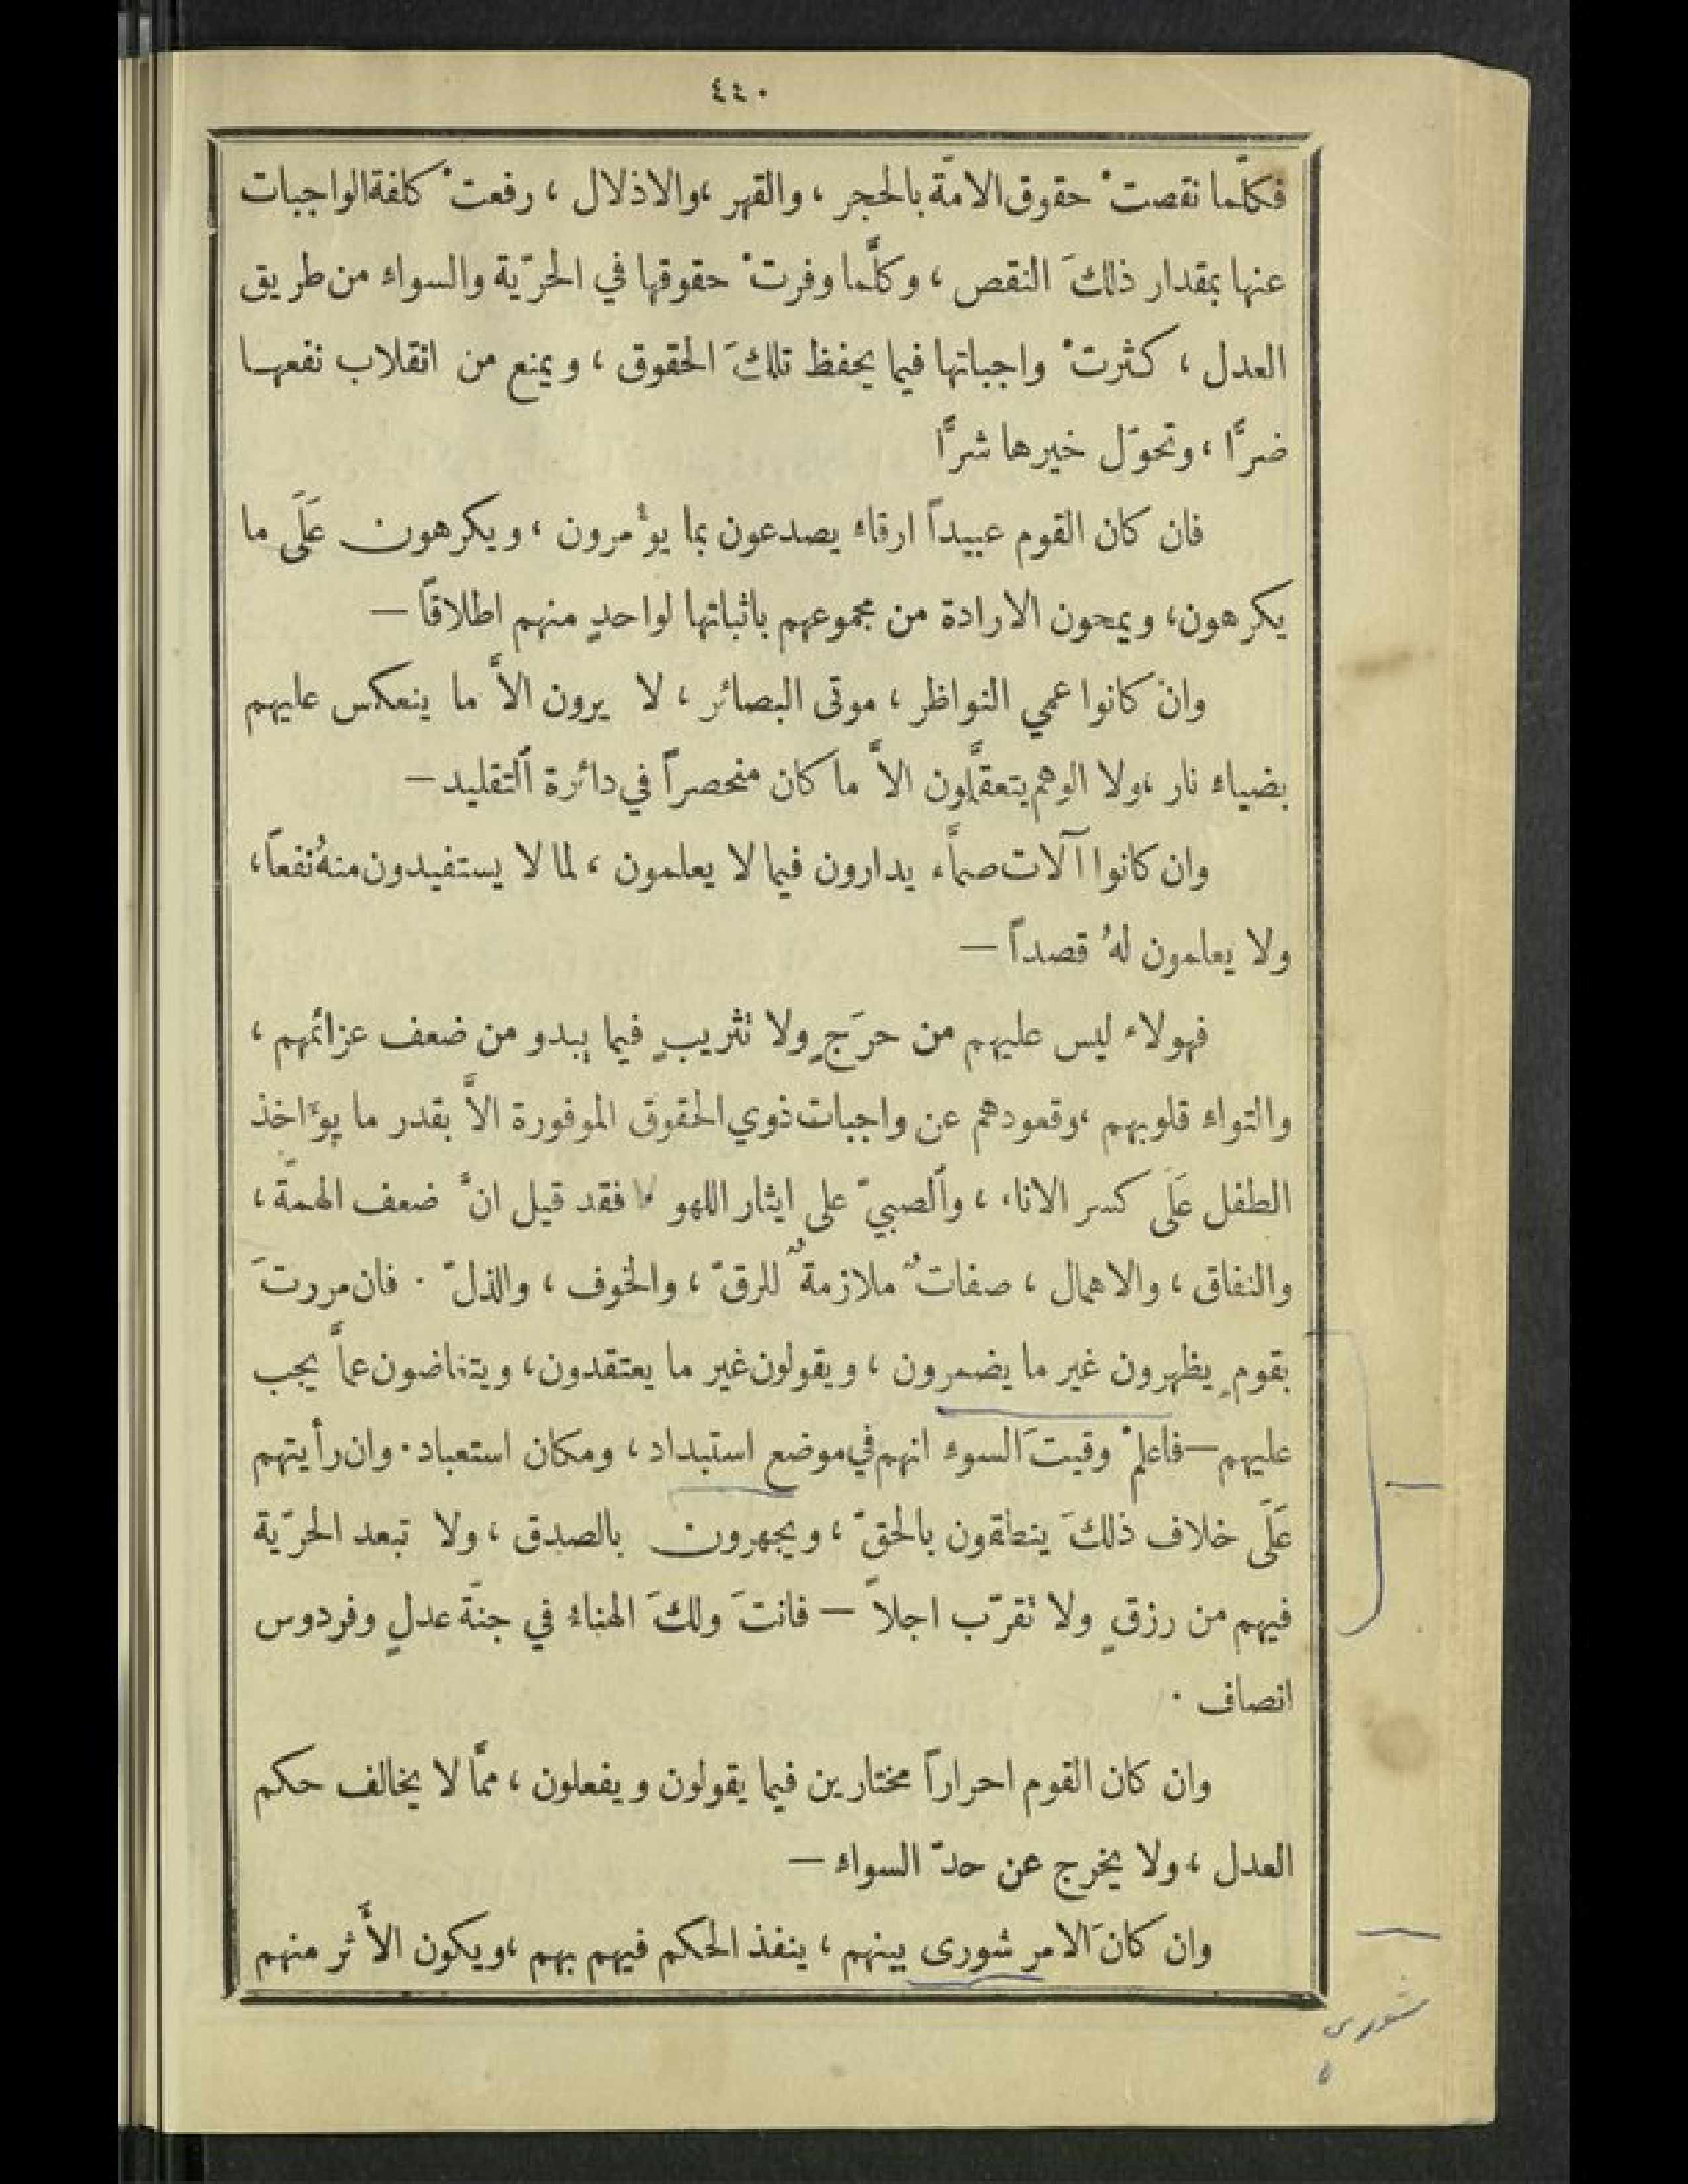 ٤٤٠
فكلَّما نقصتْ حقوق الامّة بالحجر ، والقهر ،والاذلال ، رفعتْ كلفةالواجبات
عنها بمقدار ذلكَ النقص ، وكلَّما وفرتْ حقوقها في الحرّية والسواء من طريق
العدل ، كثرتْ واجباتها فيما يحفظ تلكَ الحقوق ، ويمنع من انقلاب نفعها
ضرًّا ، وتحوّل خيرها شرًّا
فان كان القوم عبيداً ارقاء يصدعون بما يوٴمرون ، ويكرهون عَلَى ما
يكرهون، ويمحون الارادة من مجموعهم باثباتها لواحدٍ منهم اطلاقاً —
وان كانوا عمي النواظر ، موتى البصائر ، لا يرون الاَّ ما ينعكس عليهم
بضياء نار ،ولا الوهم يتعقَّلون الاَّ ما كان منحصراً في دائرة ٱلتقليد —
وان كانوا آلات صمَّاء يدارون فيما لا يعلمون ، لما لا يستفيدون منهُ نفعاً،
ولا يعلمون لهُ قصداً —
فهولاء ليس عليهم من حرَجٍ ولا تثريبٍ فيما يبدو من ضعف عزائمهم ،
والتواء قلوبهم ،وقعودهم عن واجبات ذوي الحقوق الموفورة الاَّ بقدر ما يوٴاخذ
الطفل عَلَى كسر الاناء ، وٱلصبيّ على ايثار اللهو فقد قيل انَّ ضعف الهمّة ،
والنفاق ، والاهمال ، صفاتٌ ملازمةٌ للرقّ ، والخوف ، والذلّ . فان مررتَ
بقومٍ يظهرون غير ما يضمرون ، ويقولون غير ما يعتقدون، ويتغاضون عمَّا يجب
عليهم — فاعلمْ وقيتَ السوء انهم في موضع استبداد ، ومكان استعباد . وان رأيتهم
عَلَى خلاف ذلكَ ينطقون بالحقّ ، ويجهرون بالصدق ، ولا تبعد الحرّية
فيهم من رزقٍ ولا تقرّب اجلاً — فانتَ ولكَ الهناء في جنّة عدلٍ وفردوس
انصاف .
وان كان القوم احراراً مختارين فيما يقولون ويفعلون ، ممَّا لا يخالف حكم
العدل ، ولا يخرج عن حدّ السواء —
وان كانَ الامر شورى بينهم ، ينفذ الحكم فيهم بهم ،ويكون الأَثر منهم
شورى